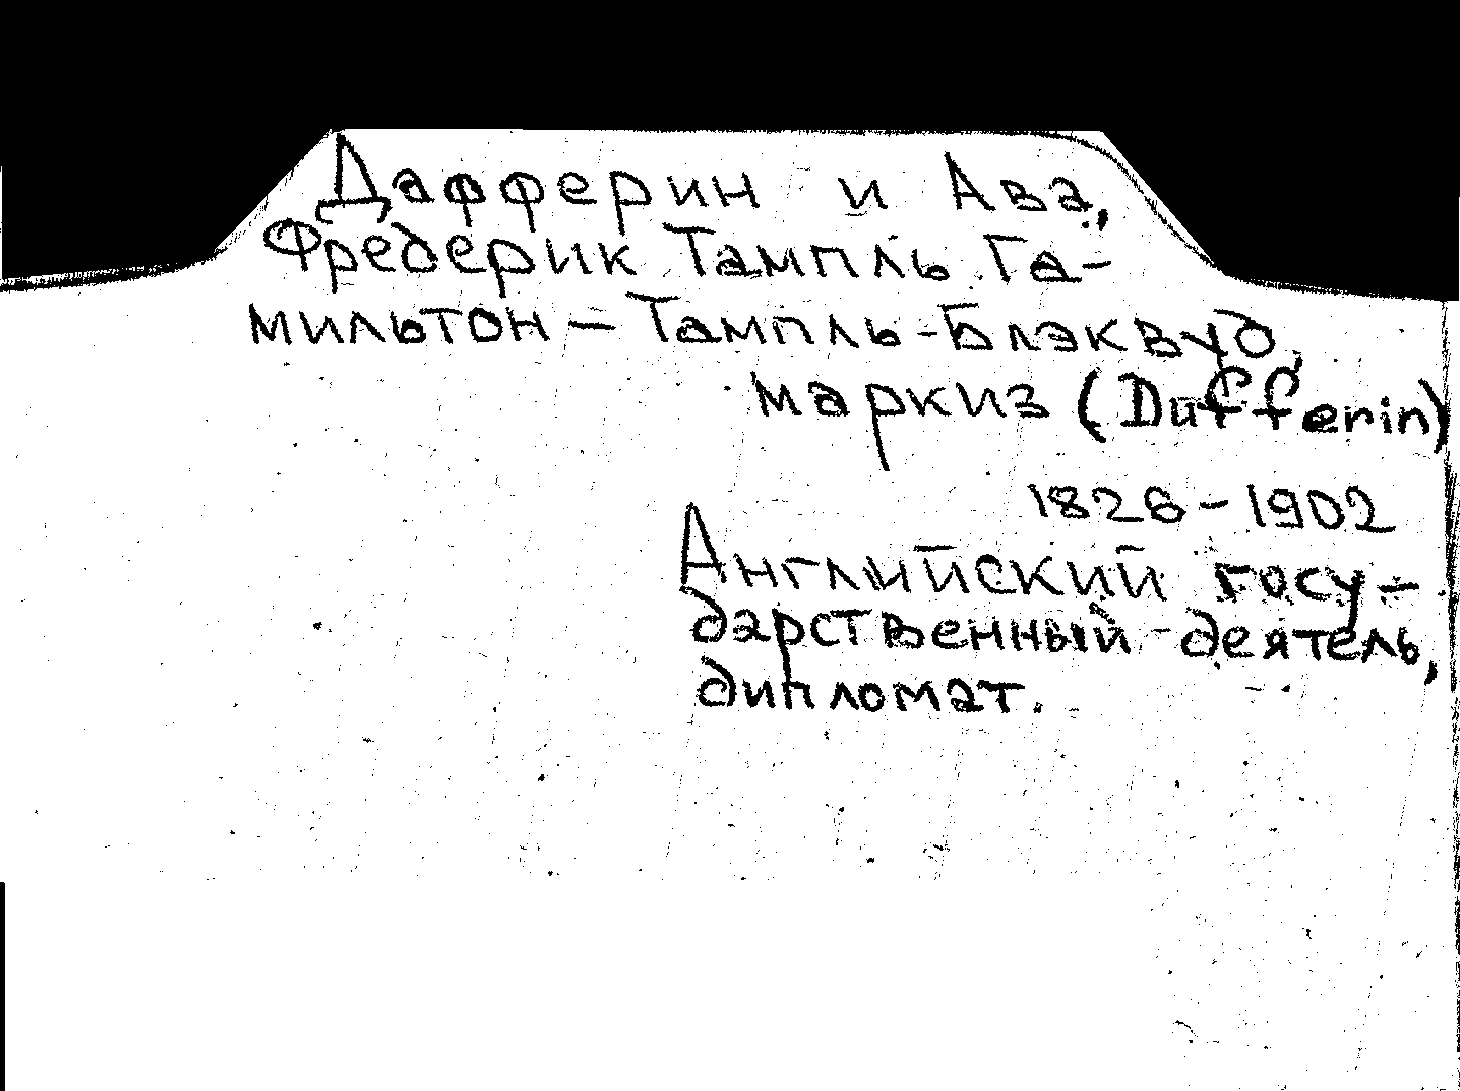 Дафферин и Ава,
Фредерик Тампль Га-
мильтон – Тампль-Блэквуд,
маркиз (Dufferin)
1826-1902
Английский госу-
дарственный деятель,
дипломат.